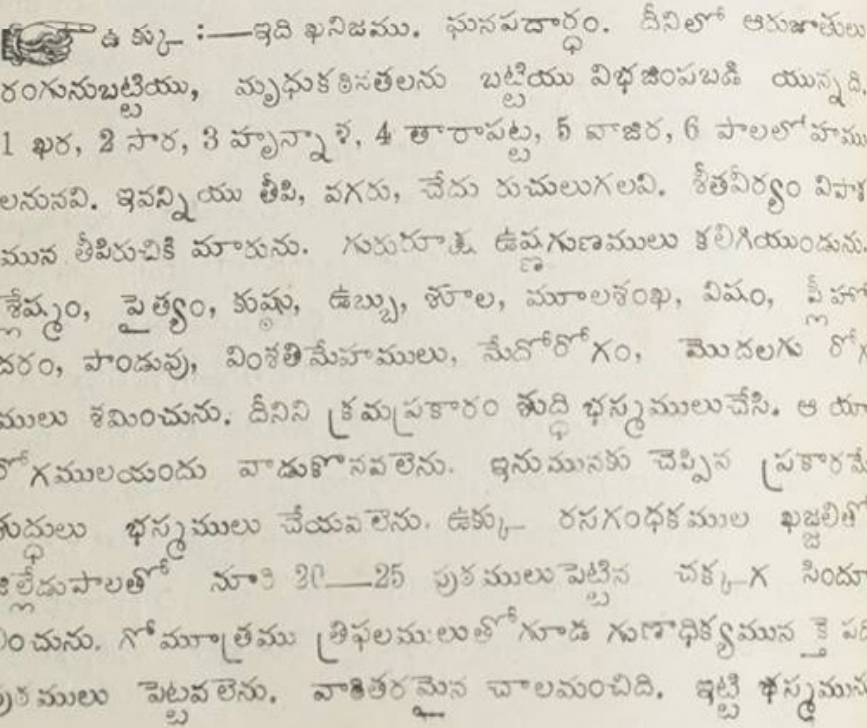 ఉక్కు :—ఇది ఖనిజము. ఘనపదార్థం. దీనిలో ఆరుజాతులు
రంగునుబట్టియు, మృధుకఠినతలను బట్టియు విభజింపబడి యున్నది.
1 ఖర, 2 సార, 3 హృన్నాళ, 4 తారాపట్ట, 5 వాజిర, 6 పాలలోహము
లనునవి. ఇవన్నియు తీపి, వగరు, చేదు రుచులుగలవి. శీతవీర్యం విపాక
మున తీపిరుచికి మారును. గురురూక్ష ఉష్ణగుణములు కలిగియుండును.
శ్లేష్మం, పైత్యం, కుష్ఠు, ఉబ్బు, శూల, మూలశంఖ, విషం, ప్లీహో
దరం, పాండువు, వింశతిమేహములు, మేదోరోగం, మొదలగు రోగ
ములు శమించును. దీనిని క్రమప్రకారం శుద్ధి భస్మములుచేసి. ఆ యా
రోగములయందు వాడుకొనవలెను. ఇనుమునకు చెప్పిన ప్రకారమే
శుద్ధులు భస్మములు చేయవలెను. ఉక్కు రసగంధకముల ఖజ్జలితో
జిల్లేడుపాలతో నూరి 20—25 పుఠములుపెట్టిన చక్కగ సిందూ
రించును. గోమూత్రము త్రిఫలములుతోగూడ గుణాధిక్యమున కై పది
పుఠములు పెట్టవలెను. వారితరమైన చాలమంచిది. ఇట్టి భస్మమున